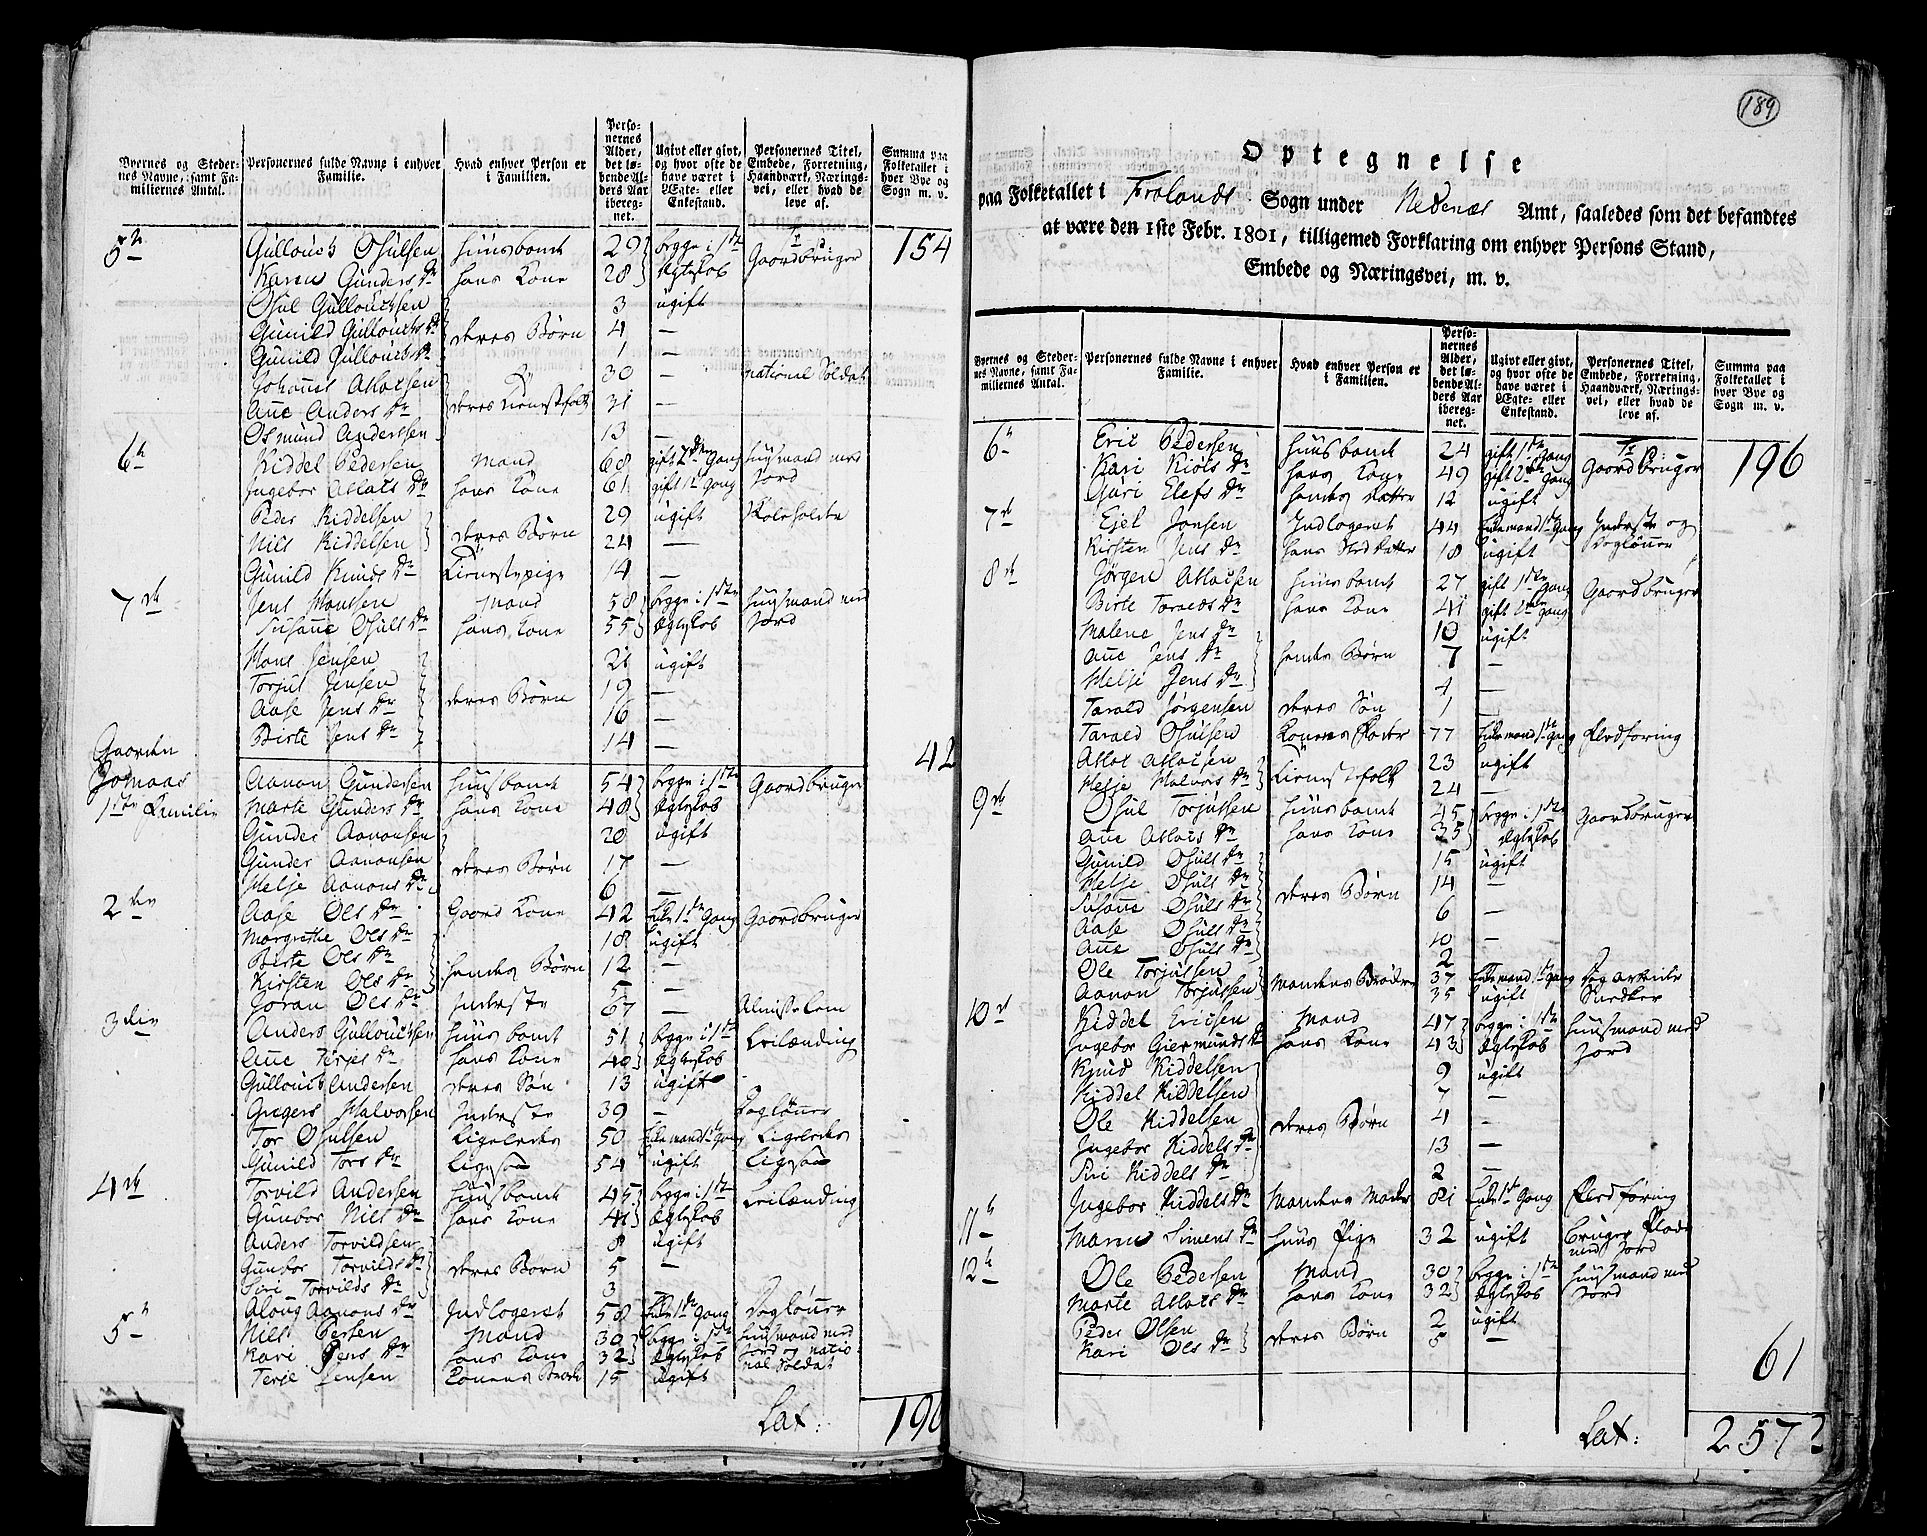 Byernes og Steder-
nes Navne, samt Fa-
miliernes Antal.
Personernes fulde Navne i enhver
Familie.
Hvad enhver Person er
i Familien.
Perso-
nernes
Alder,
det lø-
bende Al-
ders Aar
ibereg-
net.
Ugivt eller givt,
og hvor ofte de
have været i
Ægte- eller
Enkestand.
Personernes Titel,
Embede, Forretning,
Haandværk, Nærings-
vei, eller hvad de
leve af.
Summa paa
Folketallet i
hver Bye og
Sogn m. v.
5te Gullouch Osulsen Huusbond 29 begge i 1ste Gaardbruger 154
Karen Gunders Dr hans Kone 28 Ægteskab
Osul Gullouchsen 3 ugift
Gunild Gullouchs Dr deres Børn 4 —
Gunild Gullouchs Dr 1 —
Johannes Aslacsen 30 — national Soldat
Ane Anders Dr deres Tienestefolk 31 —
Osmund Anderssen 13 —
6te Kiddel Pedersen Mand 68 gift Gang Huusmand med
Ingebor Aslacs Dr hans Kone 61 gift 1te Gang Jord
Peder Kiddelsen 29 ugift Skoleholder
Nils Kiddelsen deres Børn 24 —
Gunild Knuds Dr Tienestepige 14 —
7de Jens Monsen Mand 58 begge i 1ste Huusmand med
Susanne Osuls Dr hans Kone 55 Ægteskab Jord
Mons Jensen 21 ugift
Torjul Jensen 19 —
Aase Jens Dr deres Børn 16 —
Birte Jens Dr 14 —
Gaarden 42
Bomaas
1ste Familie Aanon Gundersen Huusbond 54 begge i 1ste Gaardbruger
Marte Gunders Dr hans Kone 48 Ægteskab
Gunder Aanonsen 20 ugift
Gunder Aanonsen deres Børn 17 —
Helje Aanons Dr 6 —
2den Aase Ols Dr Gaard Kone 42 Enke 1ste Gang Gaardbruger
Margrethe Ols Dr 18 ugift
Birte Ols Dr hendes Børn 12 —
Kirsten Ols Dr 5 —
Joran Ols Dr Inderste 67 — Almisselem
3die Anders Gullouchsen Huusbond 51 begge i 1ste Leilænding
Ane Terjes Dr hans Kone 40 Ægteskab
Gullouch Andersen deres Søn 13 ugift
Gregers Halvorsen Inderste 39 — Dagløner
Tor Osulsen 50 Enkemand 1ste Gang
Gunild Tors Dr 54 ugift
4de Torvild Andersen Huusbond 45 begge i 1ste Leilænding
Gunbor Nils Dr hans Kone 41 Ægteskab
Anders Torvildsen 8 ugift
Gunbor Torvilds Dr deres Børn 5 —
Siri Torvilds Dr 3 —
Aloug Aanons Dr Indlogeret 58 Enke 1ste Gang Dagløner
5te Niels Persen Mand 30 begge i 1ste Huusmand med
Kari Jens Dr hans Kone 32 Ægteskab Jord og natio-
Terje Jensen Konens Broder 15 ugift nal Soldat
Lat: 196
189
Optegnelse
paa Folketallet i Frolands Sogn under Nedenæs Amt, saaledes som det befandtes
at være den 1ste Febr. 1801, tilligemed Forklaring om enhver Persons Stand,
Embede og Næringsvei, m. v.
Byernes og Steder-
nes Navne, samt Fa-
miliernes Antal.
Personernes fulde Navne i enhver
Familie.
Hvad enhver Person er
i Familien.
Perso-
nernes
Alder,
det lø-
bende Al-
ders Aar
ibereg-
net.
Ugivt eller givt,
og hvor ofte de
have været i
Ægte- eller
Enkestand.
Personernes Titel,
Embede, Forretning,
Haandværk, Nærings-
vei, eller hvad de
leve af.
Summa paa
Folketallet i
hver Bye og
Sogn m. v.
6te Eric Pedersen Huusbond 24 gift 1ste Gang Gaardbruger 196
Kari Kiols Dr hans Kone 49 gift 2den Gang
Guri Elefs Dr hendes Datter 12 ugift
7de Ejel Jonsen Indlogeret 44 Enkemand 1ste Gang Inderste og
Kirsten Jens Dr hans Datter 18 ugift Dagløner
8de Jørgen Aslacsen Huusbond 27 gift 1ste Gang Gaardbruger
Birte Taralds Dr hans Kone 41 gift 2den Gang
Malene Jens Dr 10 ugift
Ane Jens Dr hendes Børn 7 —
Helje Jens Dr 4 —
Tarald Jørgensen deres Søn 1 —
Tarald Osulsen Konens Fader 77 Enkemand 1ste Gang Flodføring
Aslac Aslacsen 23 ugift
Helje Halvors Dr Tienestefolk 24 —
9de Osul Torjussen Huusbond 45 begge i 1ste Gaardbruger
Ane Aslacs Dr hans Kone 35 Ægteskab
Gunild Osuls Dr 15 ugift
Helje Osuls Dr 14 —
Susanne Osuls Dr deres Børn 6 —
Aase Osuls Dr 10 —
Ane Osuls Dr 2
Ole Torjussen Mandens Brødre 37 Enkemand 1ste Gang Dag arbeider
Aanon Torjussen 35 ugift Snedker
10de Kiddel Ericsen Mand 47 begge i 1ste Huusmand med
Ingebor Giermunds Dr hans Kone 43 Ægteskab Jord
Knud Kiddelsen 9 ugift
Kiddel Kiddelsen 7 —
Ole Kiddelsen deres Børn 4 —
Ingebor Kiddels Dr 13 —
Siri Kiddels Dr 2 —
Ingebor Kiddels Dr Mandens Moder 81 Enke 1ste Gang Flodføring
11te Maren Simens Dr Huus Pige 32 ugift Bruger Plads
med Jord
12te Ole Pedersen Mand 30 begge i 1ste Huusmand med
Marte Aslacs Dr hans Kone 32 Ægteskab Jord
Peder Olsen 2 ugift
Kari Ols Dr deres Børn 5 —
61
Lat: 257